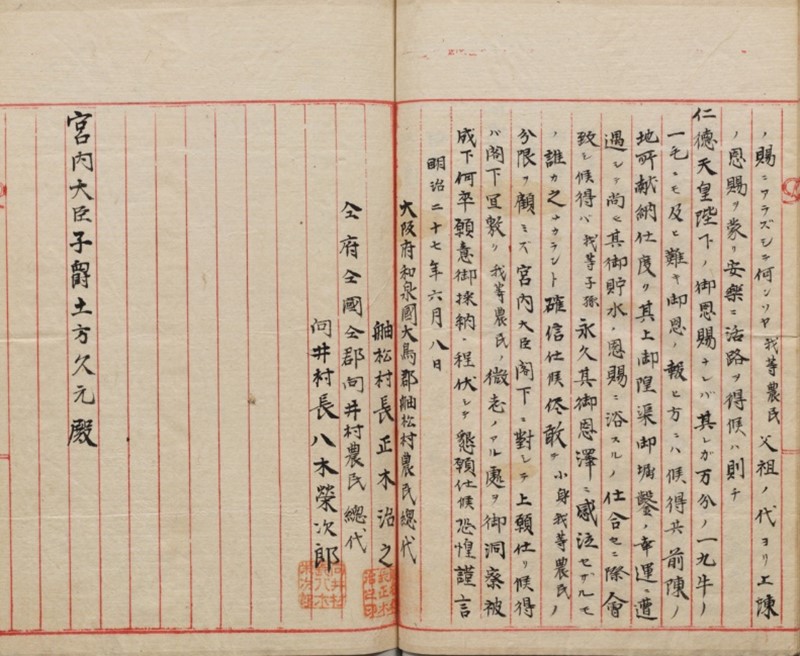 ノ賜ニアラズシテ何ンソヤ我等農民父祖ノ代ヨリ上諫
ノ恩賜ヲ蒙リ安樂ニ活路ヲ得候ハ則チ
仁德天皇陛下ノ御恩賜ナレバ其レガ万分ノ一九牛ノ
一毛ニモ及ヒ難キ御恩ノ報ヒ方ニハ候得共前陳ノ
地所献納仕度ク其上御隍渠御堀鑿ノ幸運ニ遭
遇シテ尚ホ其御貯水ノ恩賜ニ浴スルノ仕合セニ際會
致シ候得バ我等子孫永久其御恩澤ニ感泣セザルモ
ノ誰カ之ナカラント確信仕候侭敢テ小身我等農民ノ
分限ヲ顧ミズ宮内大臣閣下ニ對シテ上願仕リ候得
バ閣下冝敷ク我等農民ノ微志ノアル處ヲ御洞察被
成下何卒願意御採納ノ程伏シテ懇願仕候恐惶謹言
明治二十七年六月八日
大阪府和泉國大鳥郡舳松村農民總代
舳松村長正木治之
仝府仝國仝郡向井村農民總代
向井村長八木榮次郎
宮内大臣子爵土方久元殿